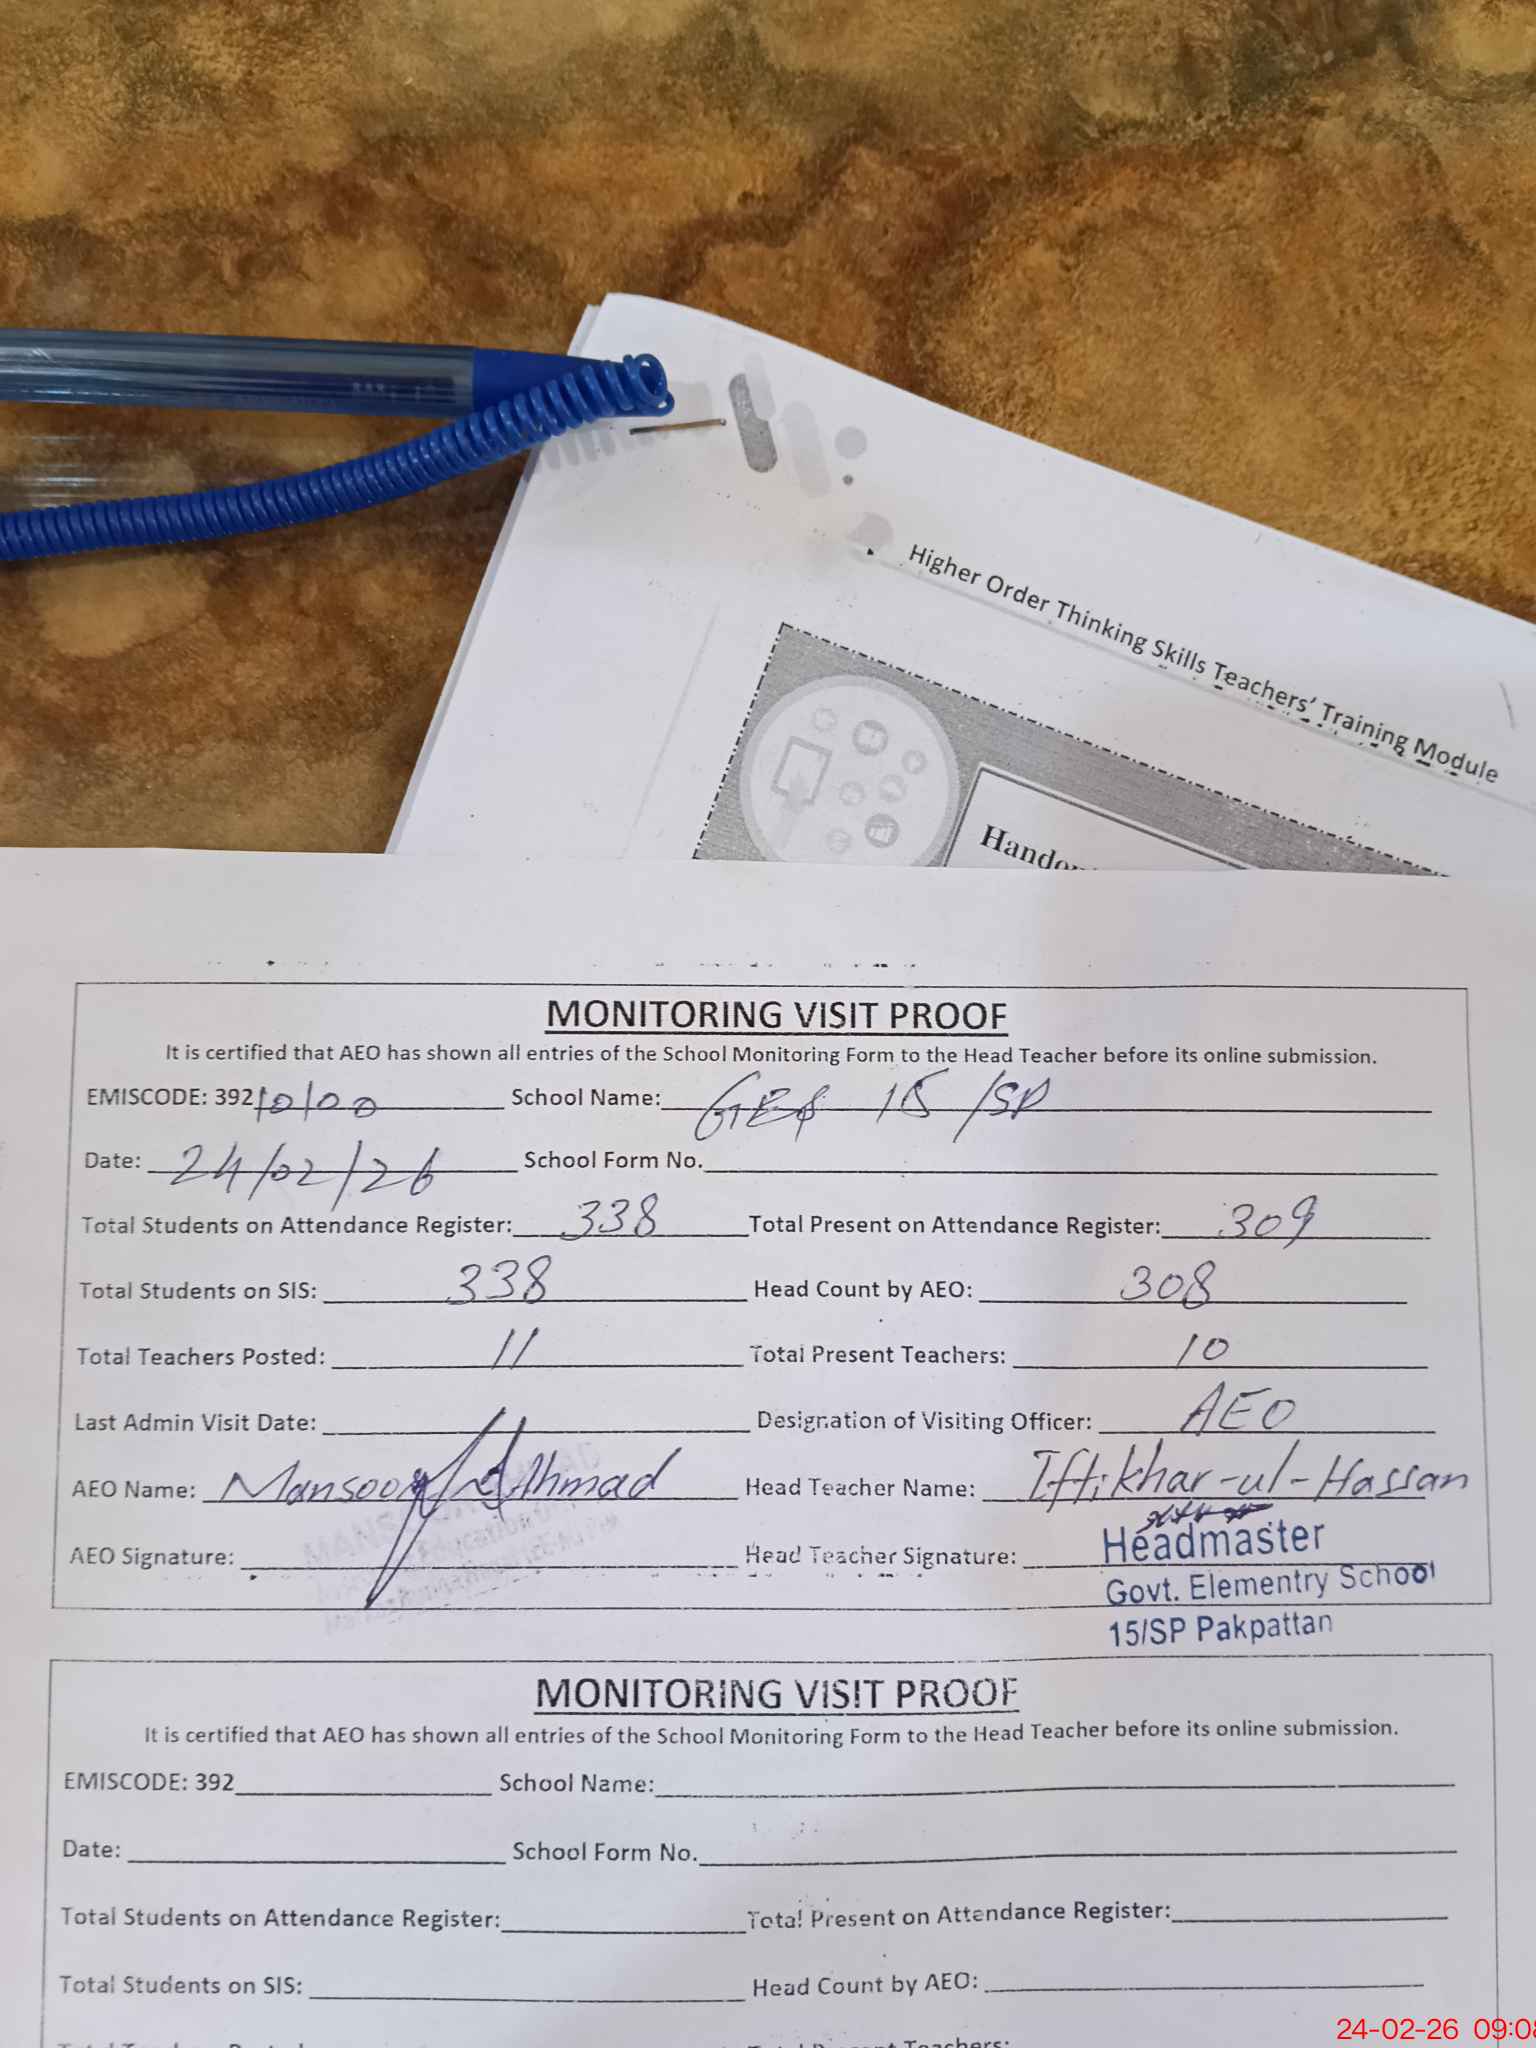 Higher Order Thinking Skills Teachers' Training Module
MONITORING VISIT PROOF
It is certified that AEO has shown all entries of the School Monitoring Form to the Head Teacher before its online submission.
EMISCODE: 39210100 School Name: GES 15/SP
Date: 24/02/26 School Form No.
Total Students on Attendance Register: 338 Total Present on Attendance Register: 309
Total Students on SIS: 338 Head Count by AEO: 308
Total Teachers Posted: 11 Total Present Teachers: 10
Last Admin Visit Date: Designation of Visiting Officer: AEO
AEO Name: Mansoor Ahmad Head Teacher Name: Iftikhar-ul-Hassan
AEO Signature: Head Teacher Signature: Headmaster
Govt. Elementry School
15/SP Pakpattan
MONITORING VISIT PROOF
It is certified that AEO has shown all entries of the School Monitoring Form to the Head Teacher before its online submission.
EMISCODE: 392 School Name:
Date: School Form No.
Total Students on Attendance Register: Total Present on Attendance Register:
Total Students on SIS: Head Count by AEO:
24-02-26 09:08